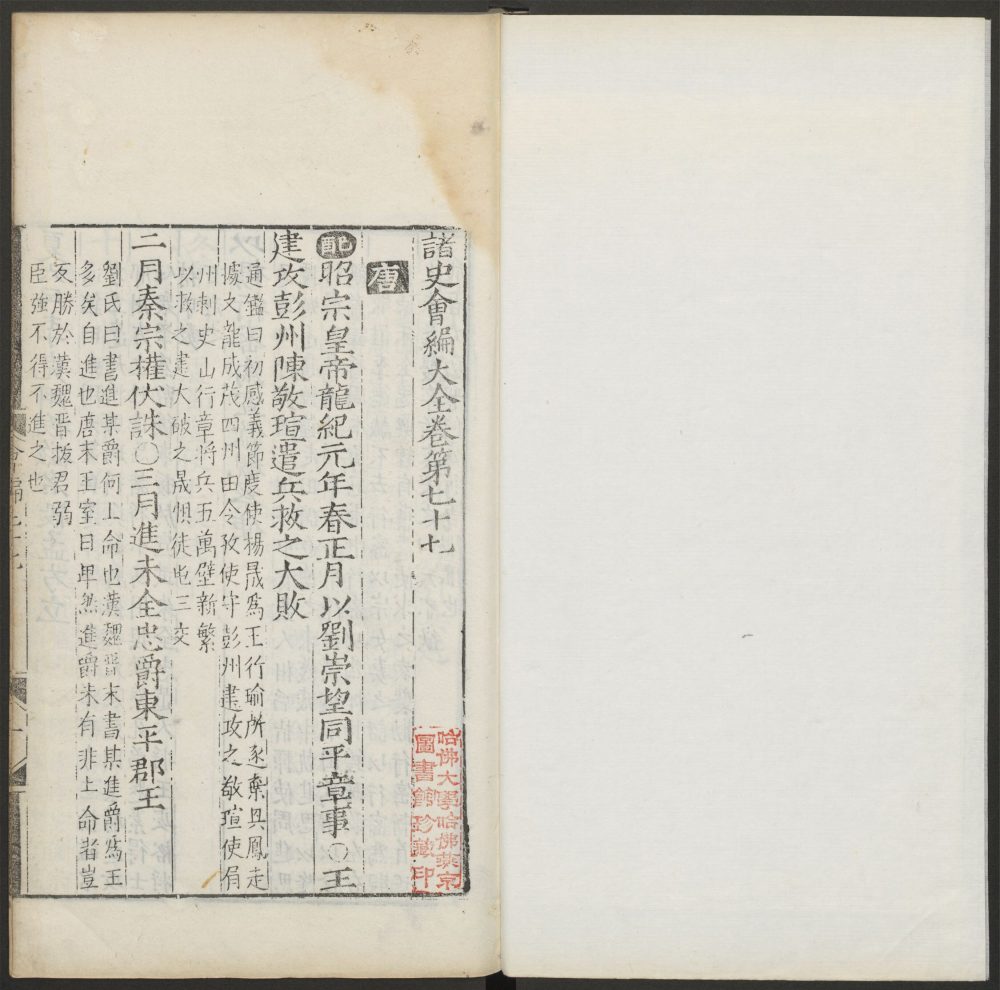 諸史會編大全卷第七十七
唐
昭宗皇帝龍紀元年春正月以劉崇望同平章事〇王
建攻彭州陳敬瑄遣兵救之大敗
通鑑曰初感義節度使楊晟爲王行瑜所逐棄興鳳走
據文龍成茂四州田令孜使守彭州建攻之敬瑄使眉
州刺史山行章將兵五萬壁新繁
以救之建大破之晟懼徙屯三交
二月秦宗權伏誅〇三月進朱全忠爵東平郡王
劉氏曰書進某爵何上命也漢魏晉末書某進爵爲王
多矣自進也唐末王室日卑然進爵未有非上命者豈
友勝於漢魏晋哉君弱
臣強不得不進之也
哈佛大學哈佛燕京
圖書館珍藏印